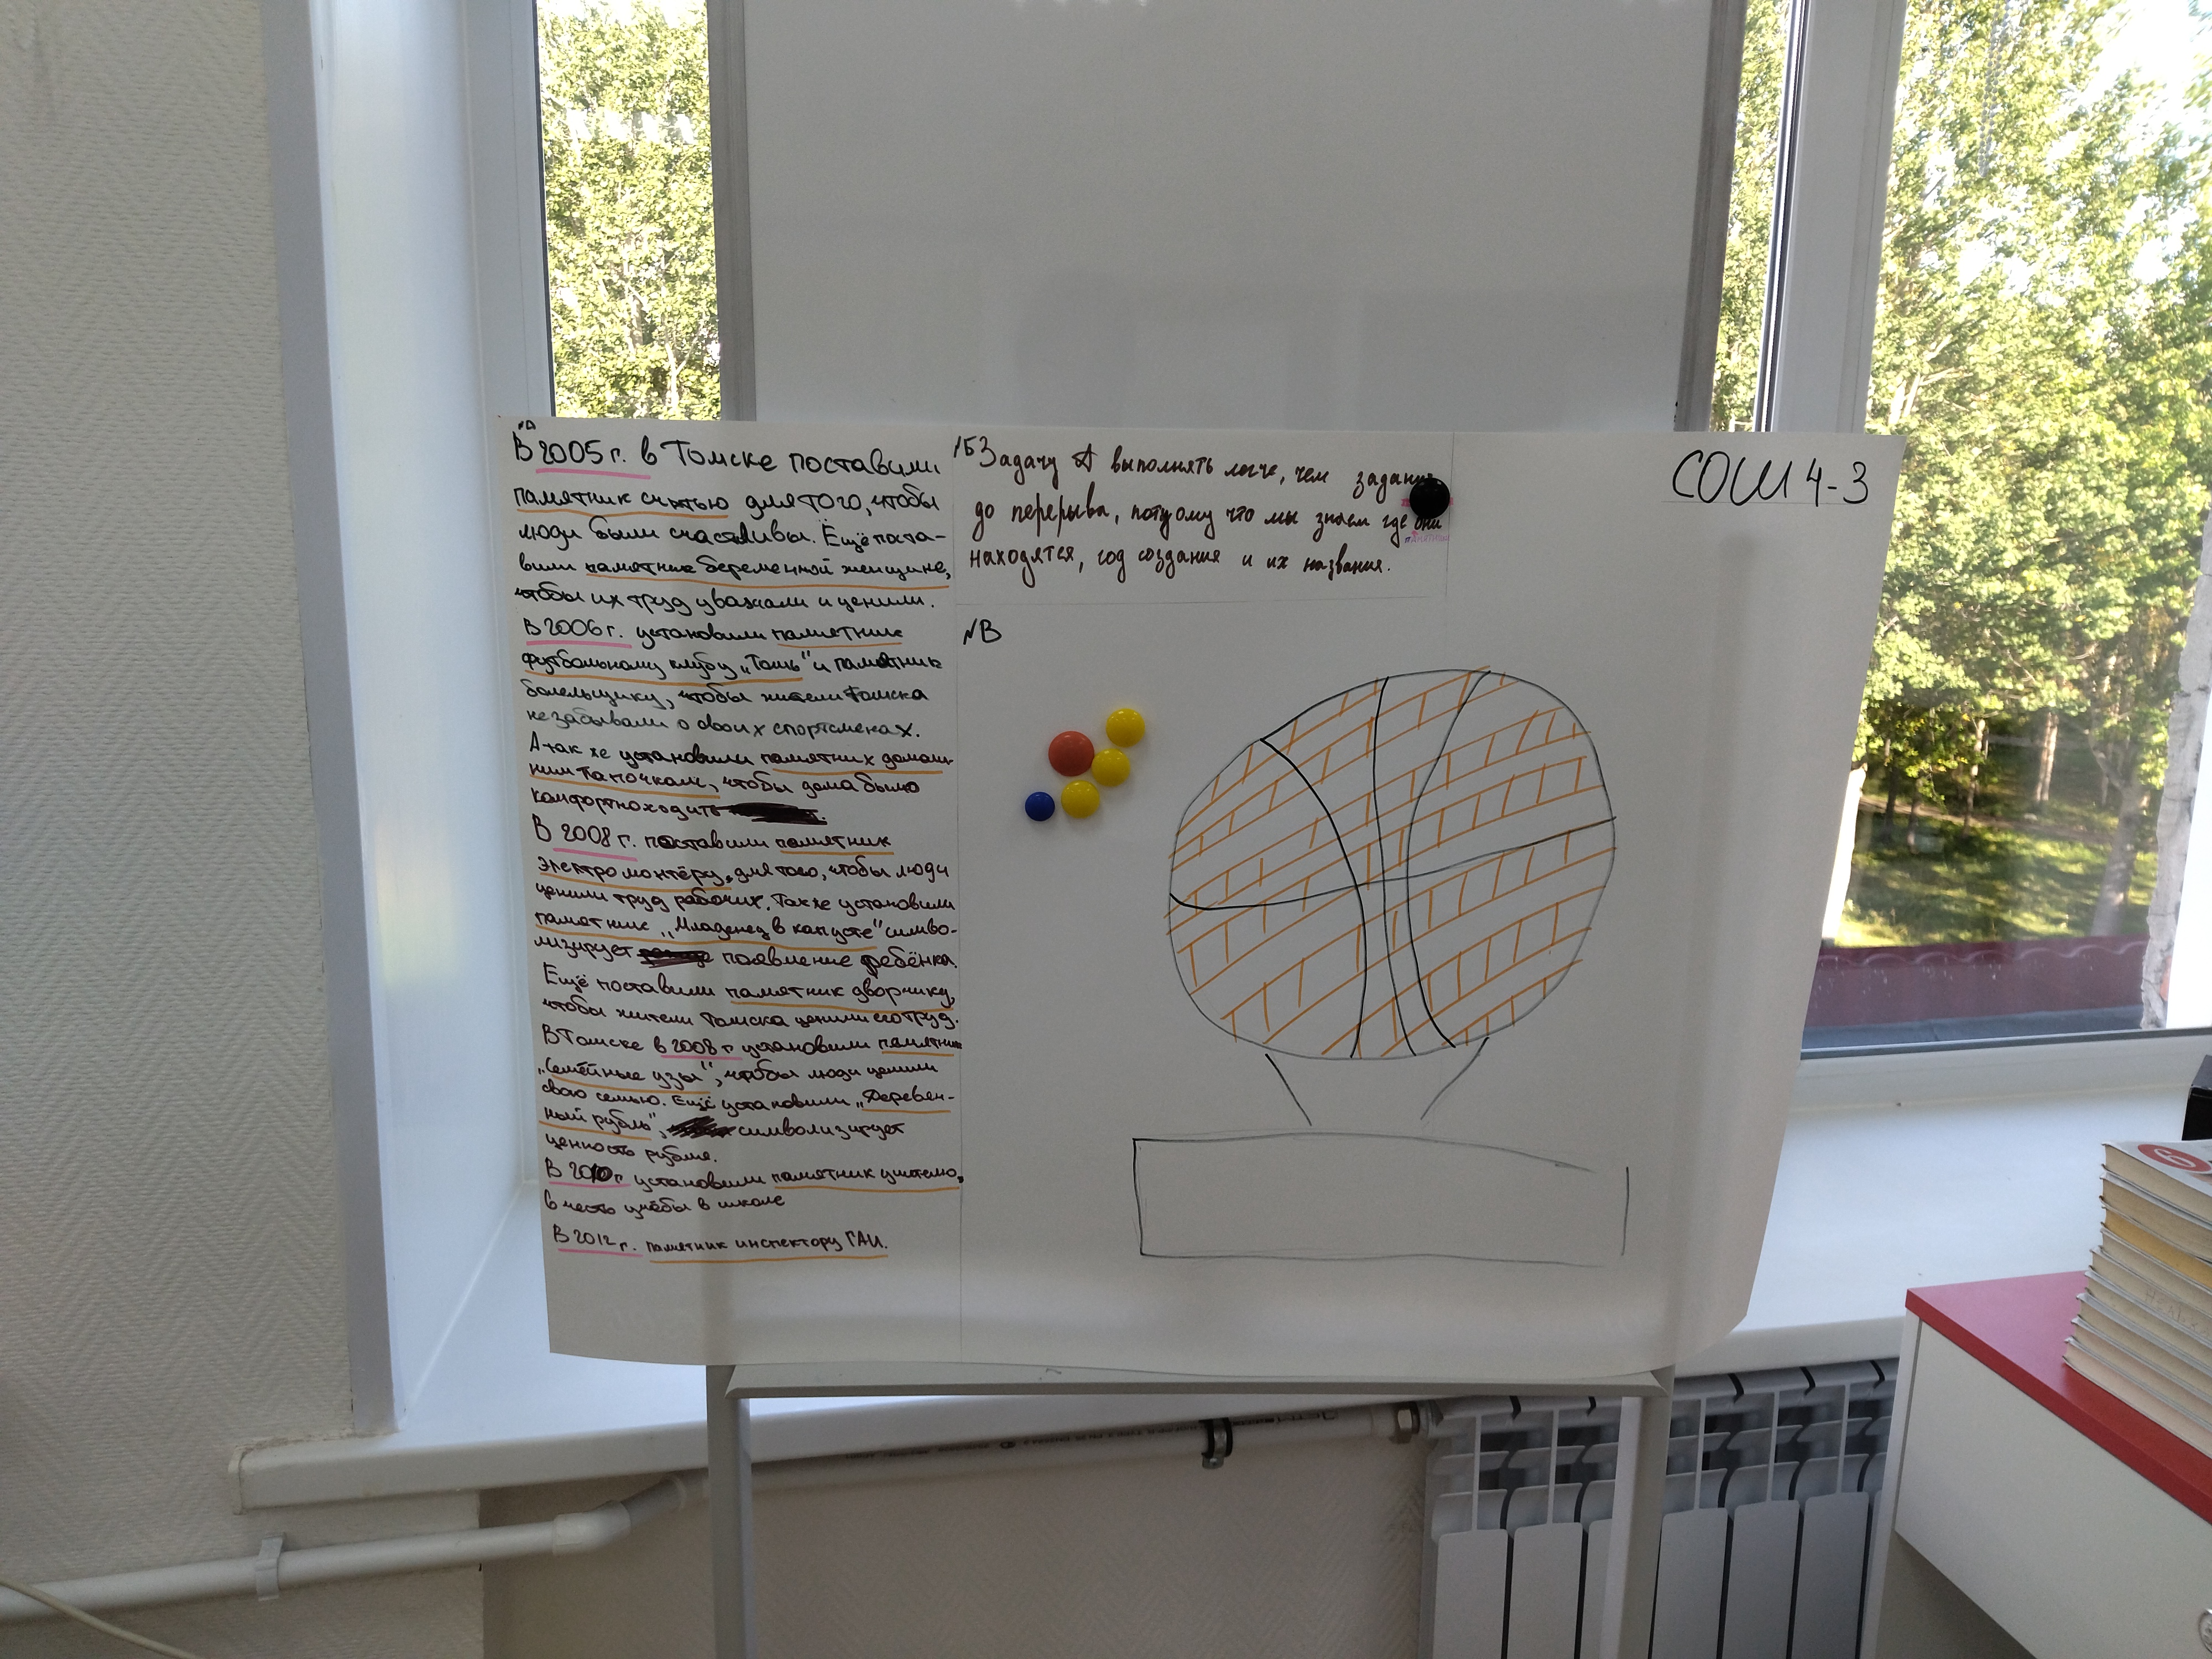 №А
В 2005 г. в Томске поставили
памятник счатью для того, чтобы
люди были счастливы. Ещё поста-
вили памятник беременной женщине,
чтобы их труд уважали и ценили.
В 2006 г. установили памятник
футбольному клубу „Томь" и памятник
болельщику, чтобы жители Томска
не забывали о своих спортсменах.
А так же установили памятник домаш-
ним тапочкам, чтобы дома было
комфортно ходить
В 2008 г. поставили памятник
электромонтёру, для того, чтобы люди
ценили труд рабочих. Также установили
памятник „Младенец в капусте" симво-
лизирует появление ребёнка.
Ещё поставили памятник дворнику,
чтобы жители Томска ценили его труд.
В Томске в 2008 г установили памятник
„Семейные узы", чтобы люди ценили
свою семью. Ещё установили „Деревен-
ный рубль", символизирует
ценность рубля.
В 2010 г установили памятник учителю,
в честь учёбы в школе
В 2012 г. памятник инспектору ГАИ.
№Б Задачу А выполнять легче, чем
до перерыва, потому что мы знаем где они
находятся, год создания и их названия.
№В
СОШ 4-3
6